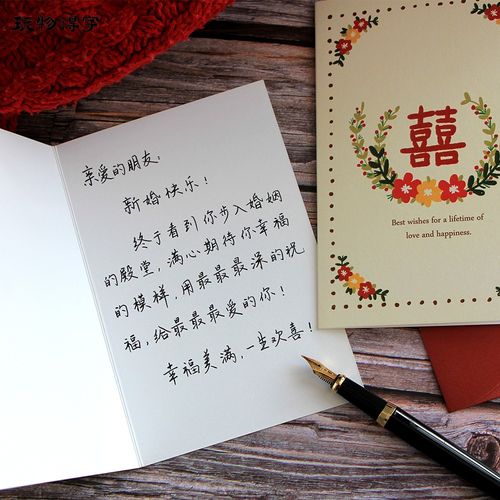 玩物得字
亲爱的朋友:
新婚快乐!
终于看到你步入婚姻
的殿堂,满心期待你幸福
的模样,用最最最深的祝
福,给最最最爱的你!
幸福美满,一生欢喜!
囍
Best wishes for a lifetime of
love and happiness.